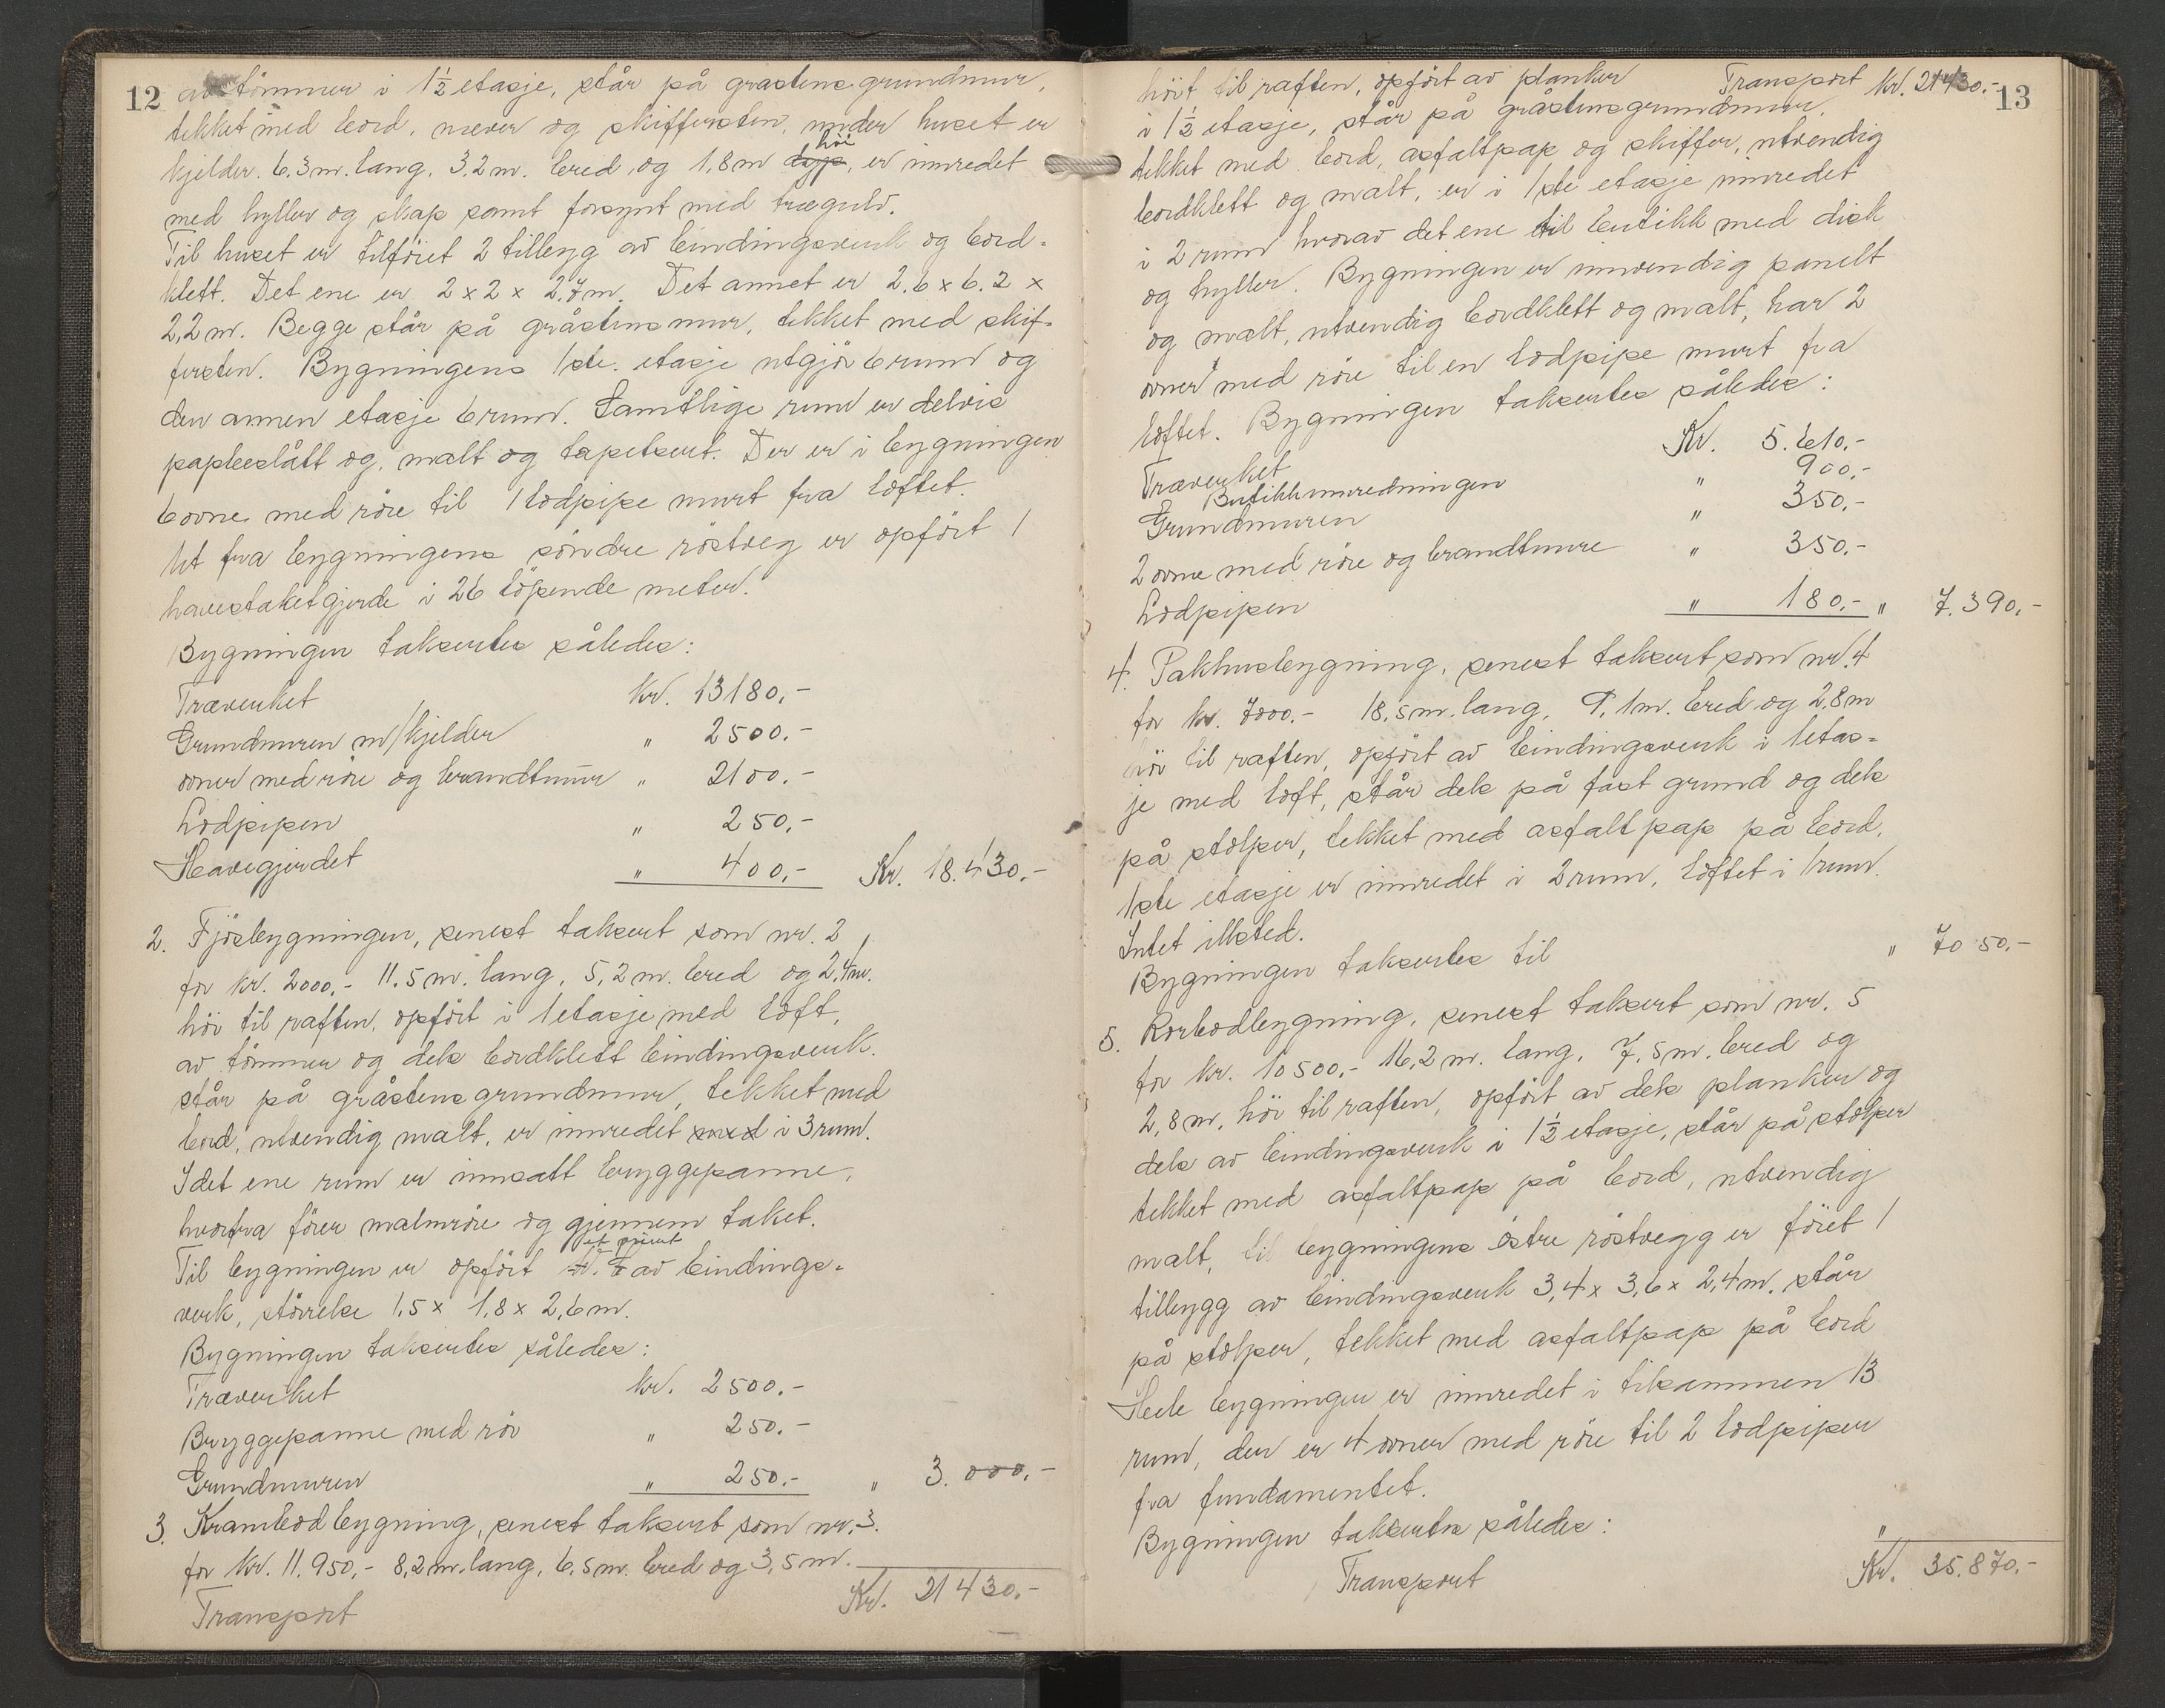 12
av tömmer i 1½ etasje, står på gråstens grundmur,
tekket med bord, næver og skiffersten, under huset er
kjelder. 6.3 m. lang, 3,2 m. bred og 1,8 m dyp höi, er innredet
med hyller og skap samt forsynt med trægulv.
Til huset er tilföiet 2 tillbyg av bindingsverk og bord-
klett. Det ene er 2 x 2 x 2,7 m. Det annet er 2.6 x 6.2 x
2,2 m. Begge står på gråstensmur, tekket med skif-
fersten. Bygningens 1ste. etasje utgjör 6 rum og
den annen etasje 6 rum. Samtlige rum er delvis
papbeslått og, malt og tapetsert. Der er i bygningen
6 ovne med röre til 1 lodpipe murt fra loftet.
Ut fra bygningens söndre röstveg er opfört 1
havestaketgjerde i 26 löpende meter.
Bygningen takseres således:
Træverket Kr. 13180.-
Grundmuren m/kjelder " 2500.-
ovner med röre og brandtmur " 2100.-
Lodpipen " 250.-
Havegjerdet " 400,- Kr. 18.430.-
2. Fjösbygningen, senest taksert som nr. 2
for kr. 2000.- 11.5 m. lang, 5,2 m. bred og 2,4 m.
höi til raften, opfört i 1 etasje med loft,
av tömmer og dels bordklett bindingsverk.
står på gråstens grundmur, tekket med
bord, utvendig malt, er innredet med i 3 rum.
I det ene rum er innsatt bryggepanne,
hvorfra förer malmröre og gjennem taket.
Til bygningen er opfört et privet av bindings-
verk, störrelse 1,5 x 1,8 x 2,6 m.
Bygningen takseres således:
Træverket kr. 2500.-
Bryggepanne med rör " 250.-
Grundmuren " 250.- " 3.000.-
3. Krambodbygning, senest taksert som nr. 3.
for kr. 11.950,- 8,2 m. lang, 6,5 m. bred og 3,5 m.
Transport Kr. 21430.-
13
Transport kr. 21430.-
höit til raften, opfört av planker
i 1½ etasje, står på gråstensgrundmur,
tekket med bord, asfaltpap og skiffer, utvendig
bordklett og malt, er i 1ste etasje innredet
i 2 rum hvorav det ene til butikk med disk
og hyller. Bygningen er innvendig panelt
og malt, utvendig bordklett og malt, har 2
ovner med röre til en lodpipe murt fra
loftet. Bygningen takseres således:
Træverket Kr. 5.610.-
Butikkinnredningen 900,-
Grundmuren " 350,-
2 ovne med röre og brandtmure " 350.-
Lodpipen " 180.- " 7.390.-
4. Pakhusbygning, senest taksert som nr. 4
for kr. 7000.- 18,5 m. lang, 9,1 m. bred og 2,8 m
höi til raften, opfört av bindingsverk i 1 etas-
je med loft, står dels på fast grund og dels
på stolper, tekket med asfaltpap på bord,
1ste etasje er innredet i 2 rum, loftet i 1 rum.
Intet illsted.
Bygningen takseres til " 7050.-
5. Rorbodbygning, senest taksert som nr. 5
for kr. 10500.- 16,2 m. lang, 7,5 m. bred og
2,8 m. höi til raften, opfört av dels planker og
dels av bindingsverk i 1½ etasje, står på stolper
tekket med asfaltpap på bord, utvendig
malt, til bygningens östre röstvegg er föiet 1
tillbygg av bindingsverk 3,4 x 3,6 x 2,4 m. står
på stolper, tekket med asfaltpap på bord
Hele bygningen er innredet i tilsammen 13
rum, der er 4 ovner med röre til 2 lodpiper
fra fundamentet.
Bygningen takseres således: "
Transport Kr. 35.870.-